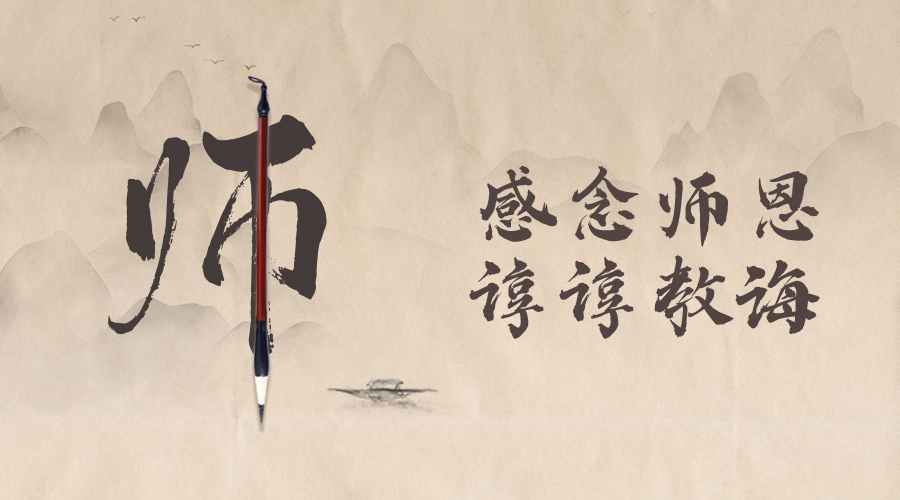 师
感念师恩
谆谆教诲